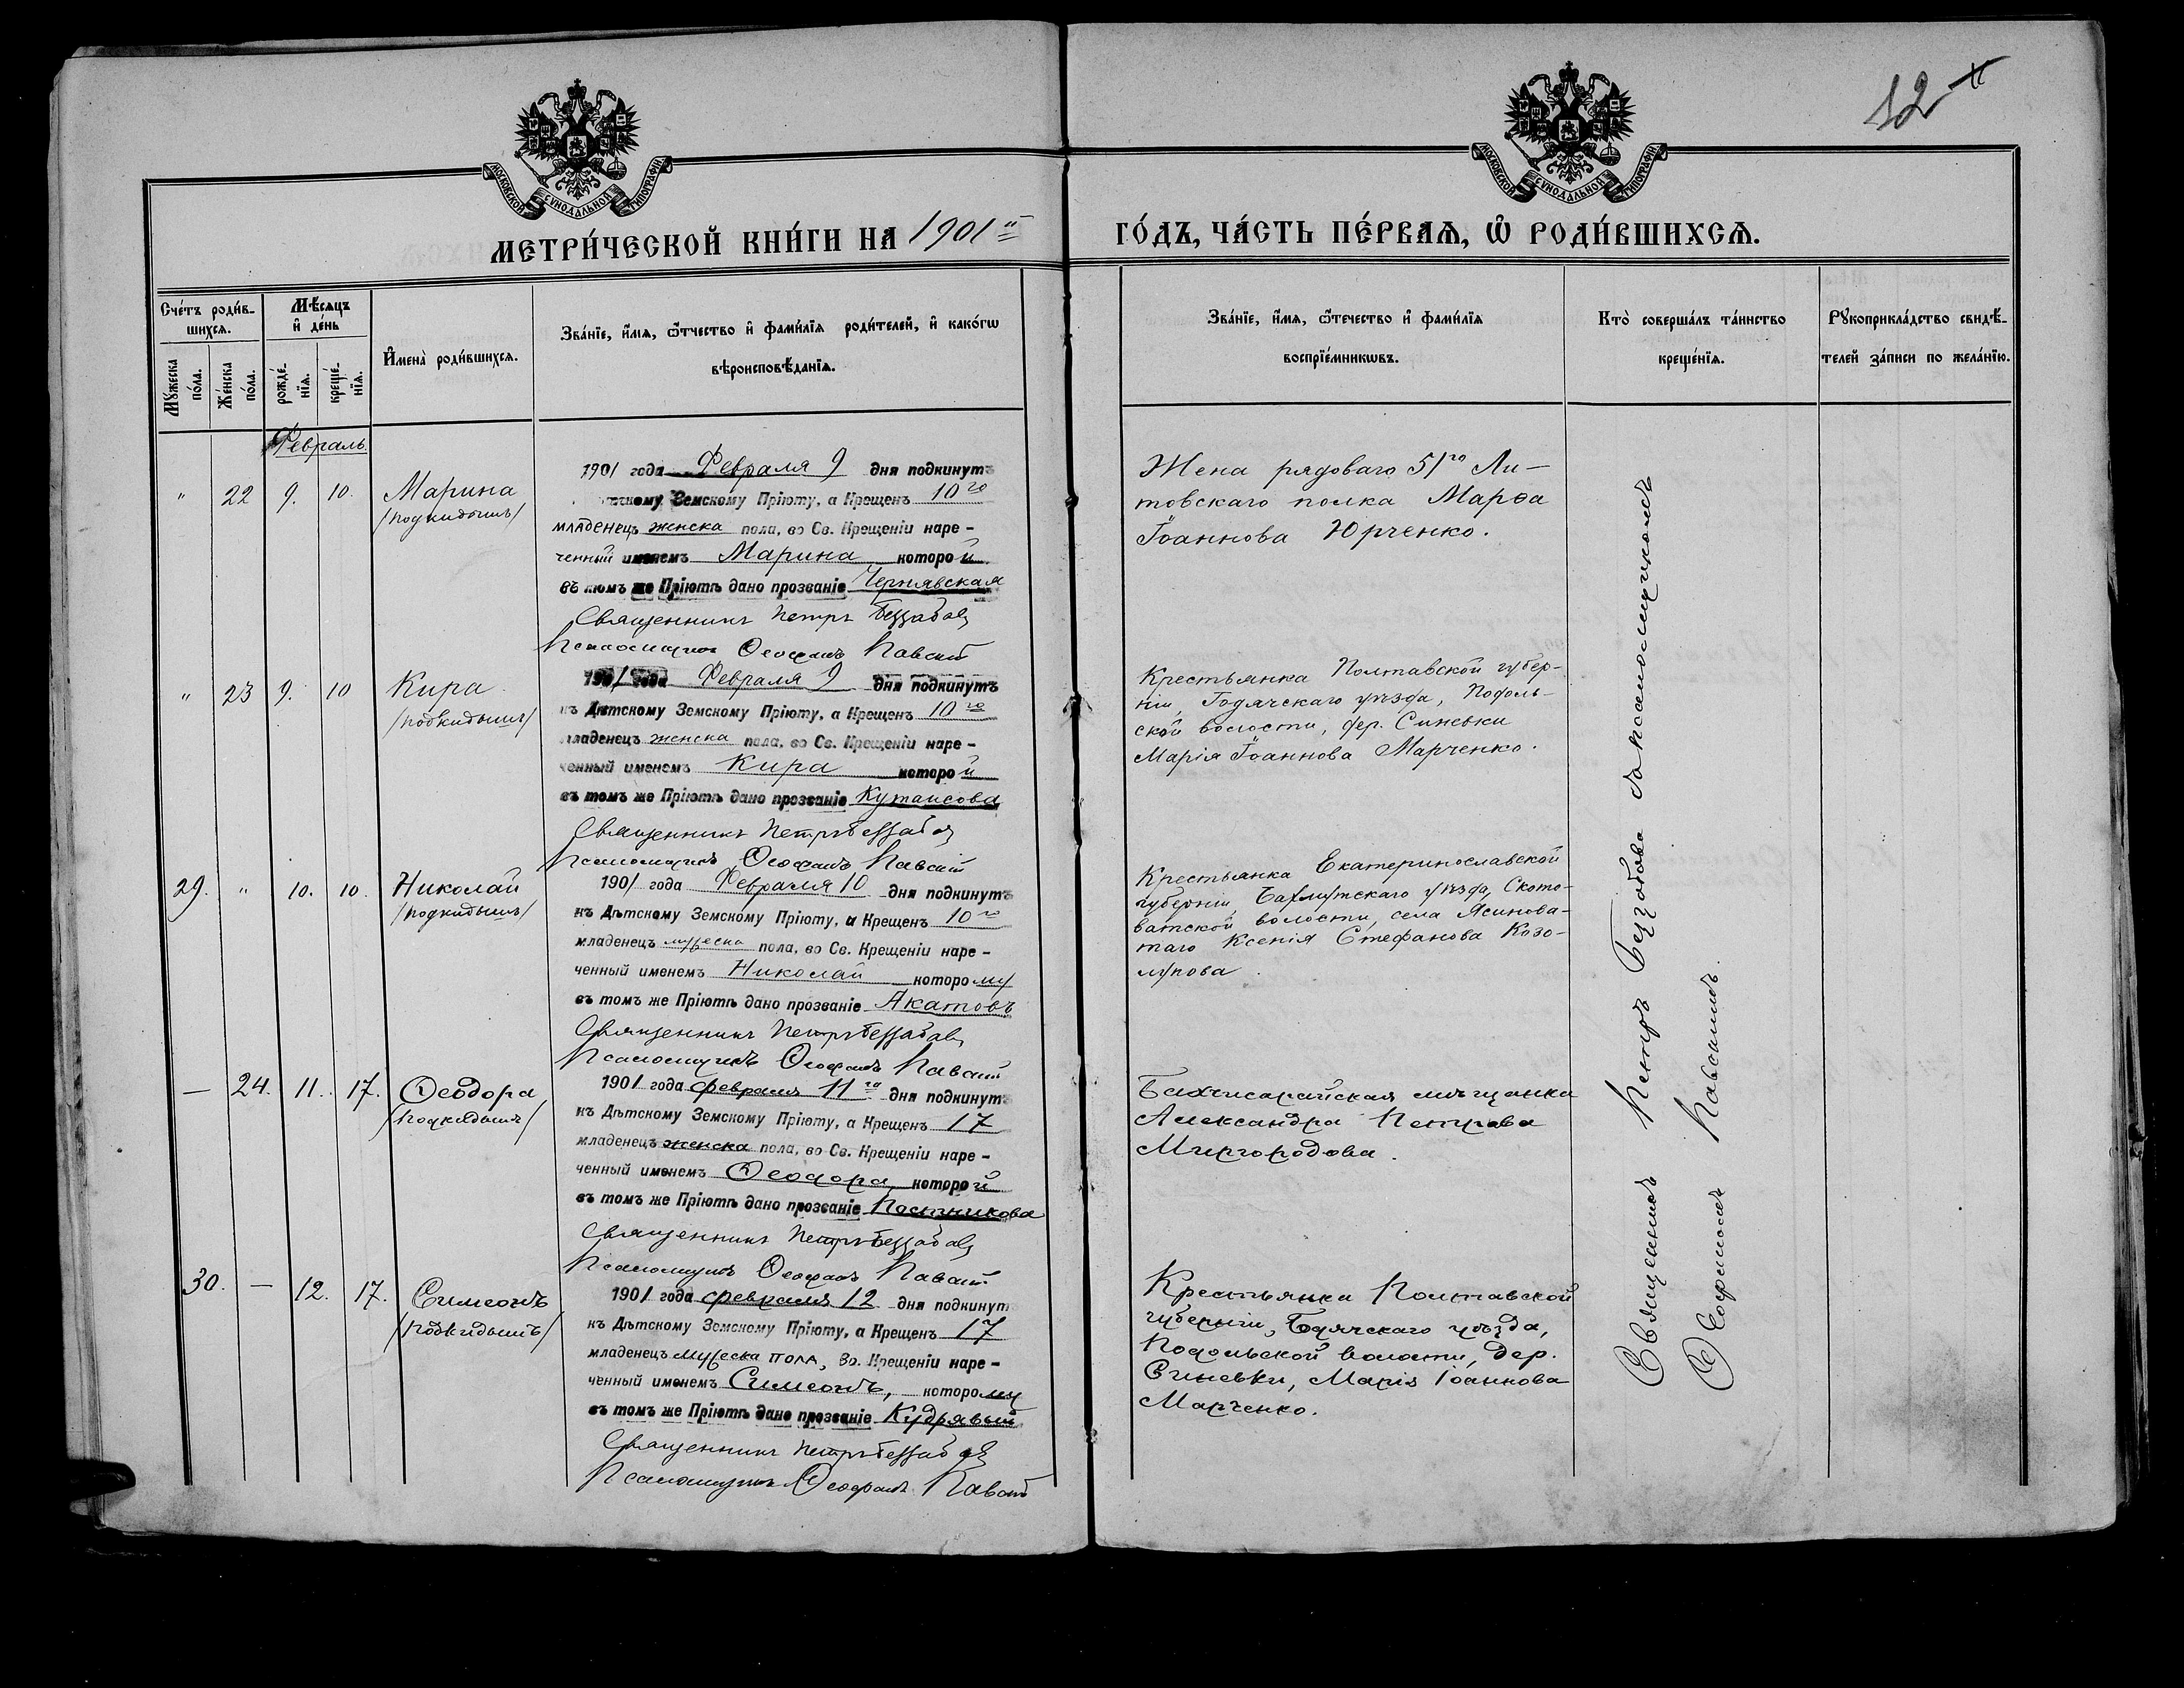 12
МОСКОВСКОЙ СУНОДАЛЬНОЙ ТИПОГРАФІИ
МОСКОВСКОЙ СУНОДАЛЬНОЙ ТИПОГРАФІИ
МЕТРИ́ЧЕСКОЙ КНИ́ГИ НА 1901й
ГО́ДЪ, ЧА́СТЬ ПЕ́РВАѦ, Ѡ҆ РОДИ́ВШИХСѦ.
Сче́тъ роди́в-
шихсѧ.
Мꙋ́жеска по́ла.
Же́нска по́ла.
Мѣ́сѧцъ
и҆ де́нь
рожде́-
нїѧ.
креще́-
нїѧ.
И҆мена̀ роди́вшихсѧ.
Зва́нїе, и҆́мѧ, ѻ҆́тчество и҆ фами́лїѧ роди́телей, и҆ како́гѡ
вѣроисповѣ́данїѧ.
Зва́нїе, и҆́мѧ, ѻ҆́течество и҆ фами́лїѧ
воспрїе́мникѡвъ.
Кто̀ соверша́лъ та́инство
креще́нїѧ.
Рꙋкоприкла́дство свидѣ́-
телей за́писи по жела́нїю.
Февраль.
" 22 9. 10. Марина
/подкидышъ/
1901 года Февраля 9 дня подкинутъ
Дѣтскому Земскому Пріюту, а Крещенъ 10го
младенецъ женска пола, во Св. Крещеніи наре-
ченный именемъ Марина которой
въ томъ же Пріютѣ дано прозваніе Чернявская
Священникъ Петръ Беззабав
Псаломщикъ Ѳеофилъ Павс
Жена рядоваго 51го Ли-
товскаго полка Марѳа
Іоаннова Юрченко.
" 23 9. 10 Кира
/подкидышъ/
1901 года Февраля 9 дня подкинутъ
къ Дѣтскому Земскому Пріюту, а Крещенъ 10го
младенецъ женска пола, во Св. Крещеніи наре-
ченный именемъ Кира которой
въ томъ же Пріютѣ дано прозваніе Кутаисова
Священникъ Петръ
Псаломщикъ
Крестьянка Полтавской губер-
ніи, Годячскаго уѣзда, Подоль-
ской волости, дер. Синевки
Марія Іоаннова Марченко.
29. " 10. 10. Николай
/подкидышъ/
1901 года Февраля 10 дня подкинутъ
къ Дѣтскому Земскому Пріюту, а Крещенъ 10го
младенецъ мужеска пола, во Св. Крещеніи наре-
ченный именемъ Николай которому
въ томъ же Пріютѣ дано прозваніе Акатовъ
Священникъ Петръ
Псаломщикъ
Крестьянка Екатеринославской
губерніи, Бахмутскаго уѣзда, Ското-
ватской волости, села Ясинова-
таго Ксенія Стефанова Козо-
лупова.
— 24. 11. 17. Ѳеодора
/подкидышъ/
1901 года февраля 11го дня подкинутъ
къ Дѣтскому Земскому Пріюту, а Крещенъ 17
младенецъ женска пола, во Св. Крещеніи наре-
ченный именемъ Ѳеодора, которой
въ томъ же Пріютѣ дано прозваніе Постникова
Священникъ Петръ
Псаломщикъ
Бахчисарайская мѣщанка
Александра Петрова
Миргородова.
30. — 12. 17. Симеонъ
/подкидышъ/
1901 года февраля 12 дня подкинут
къ Дѣтскому Земскому Пріюту, а Крещенъ 17
младенецъ мужеска пола, во. Крещеніи наре-
ченный именемъ Симеонъ, которому
въ томъ же Пріютѣ дано прозваніе Кудрявый
Священникъ Петръ
Псаломщикъ
Крестьянка Полтавской
губерніи, Годячскаго уѣзда,
Подольской волости, дер.
Синевки, Марія Іоаннова
Марченко.
Священникъ Петръ съ псаломщикомъ